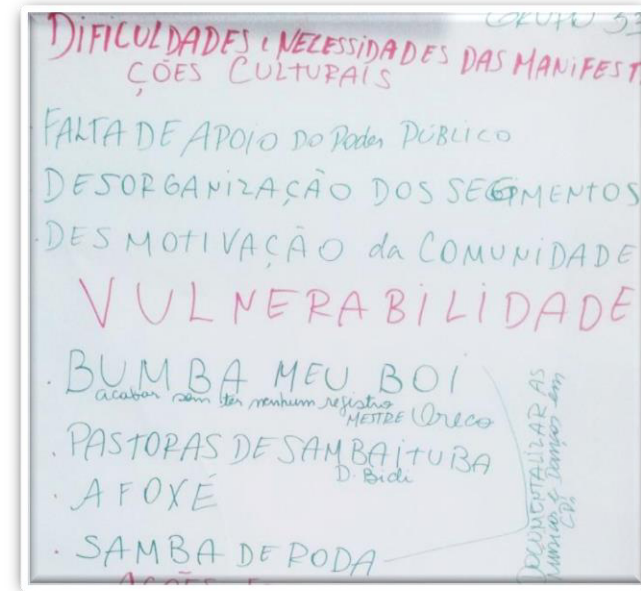 GRUPO 33
DIFICULDADES E NECESSIDADES DAS MANIFEST
ÇÕES CULTURAIS
FALTA DE APOIO DO Poder PÚBLICO
DESORGANIZAÇÃO DOS SEGMENTOS
. DESMOTIVAÇÃO da COMUNIDADE
VULNERABILIDADE
. BUMBA MEU BOI
acabar sem ter nenhum registro
MESTRE Oreco
. PASTORAS DE SAMBAITUBA
D. Bidi
. AFOXÉ
. SAMBA DE RODA
DOCUMENTALIZAR AS
Músicas e Danças em
CD.
AÇÕES